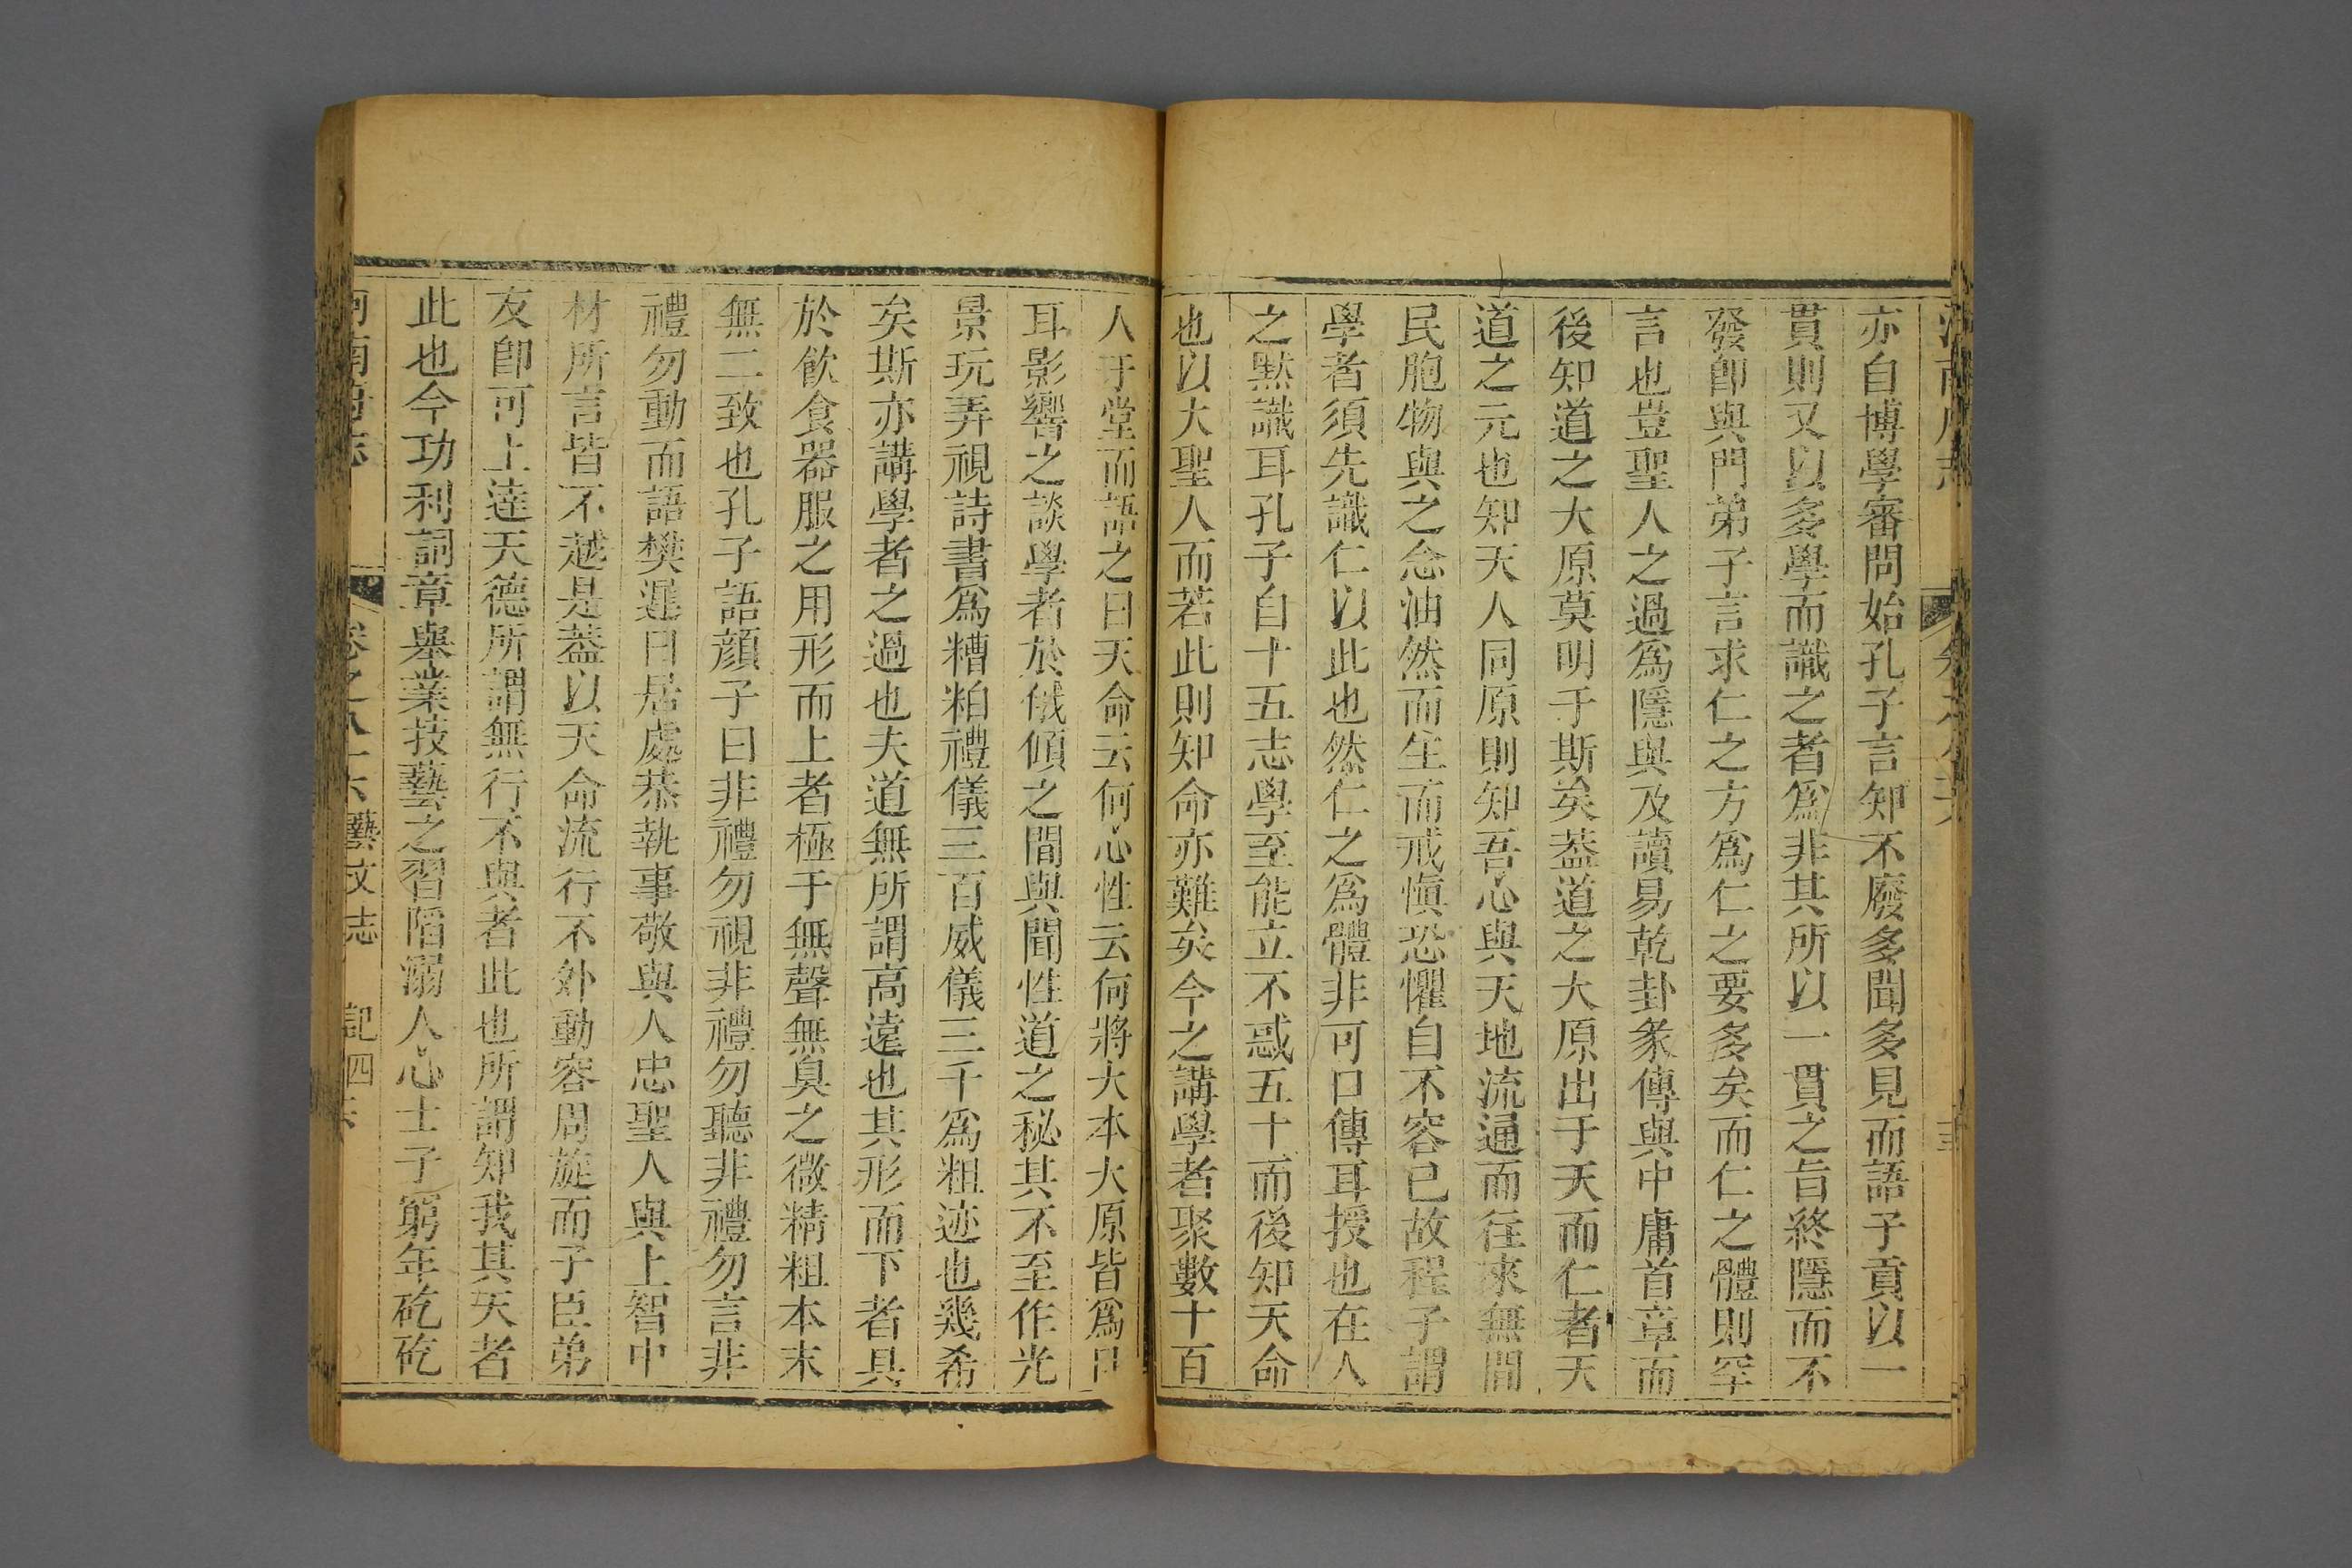 亦自博學審問始孔子言知不廢多聞多見而語子貢以一
貫則又以多學而識之者爲非其所以一貫之旨終隱而不
發卽與門弟子言求仁之方爲仁之要多矣而仁之體則罕
言也豈聖人之過爲隱與及讀易乾卦彖傳與中庸首章而
後知道之大原莫明于斯矣葢道之大原出于天而仁者天
道之元也知天人同原則知吾心與天地流通而往來無間
民胞物與之念油然而生而戒愼恐懼自不容已故程子謂
學者須先識仁以此也然仁之爲體非可口傳耳授也在人
之黙識耳孔子自十五志學至能立不惑五十而後知天命
也以大聖人而若此則知命亦難矣今之講學者聚數十百
人于堂而語之曰天命云何心性云何將大本大原皆爲口
耳影響之談學者於俄傾之間與聞性道之秘其不至作光
景玩弄視詩書爲糟粕禮儀三百威儀三千爲粗迹也幾希
矣斯亦講學者之過也夫道無所謂高遠也其形而下者具
於飲食器服之用形而上者極于無聲無臭之微精粗本末
無二致也孔子語顔子曰非禮勿視非禮勿聽非禮勿言非
禮勿動而語樊遲曰居處恭執事敬與人忠聖人與上智中
材所言皆不越是葢以天命流行不外動容周旋而子臣弟
友卽可上達天德所謂無行不與者此也所謂知我其天者
此也今功利詞章舉業技藝之習陷溺人心士子窮年矻矻
卷之八十六 藝文志 記四